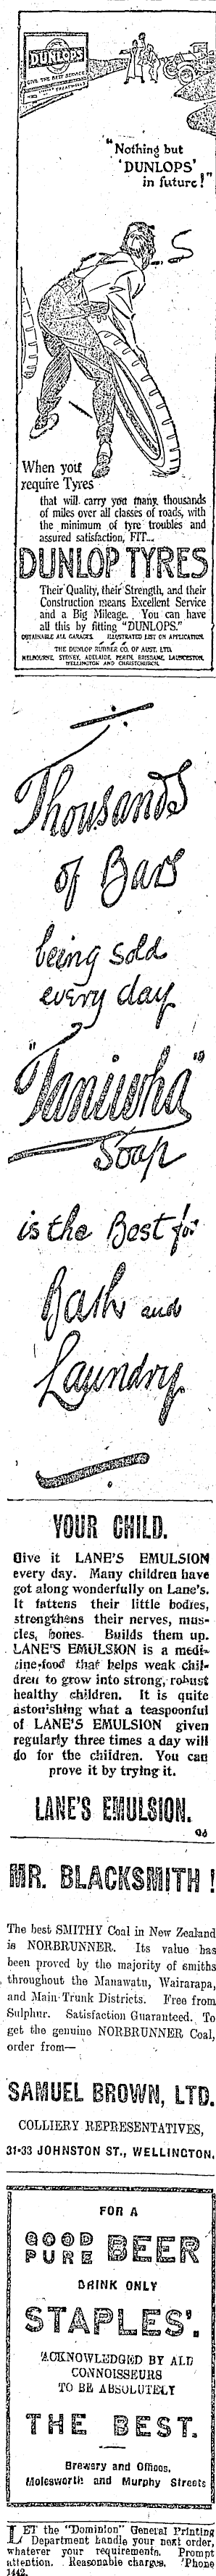 DUNLOPS
GIVE THE BEST SERVICE
"Nothing but
'DUNLOPS'
in future!"
When you
require Tyres
that will carry you many thousands
of miles over all classes of roads, with
the minimum of tyre troubles and
assured satisfaction, FIT...
DUNLOP TYRES
Their Quality, their Strength, and their
Construction means Excellent Service
and a Big Mileage. You can have
all this by fitting "DUNLOPS."
OBTAINABLE ALL GARAGES. ILLUSTRATED LIST ON APPLICATION.
THE DUNLOP RUBBER CO. OF AUST. LTD.
MELBOURNE, SYDNEY, ADELAIDE, PERTH, BRISBANE, LAUNCESTON,
WELLINGTON AND CHRISTCHURCH.
Thousands
of Bars
being sold
every day
"Taniwha"
Soap
is the Best for
Bath and
Laundry
YOUR CHILD.
Give it LANE'S EMULSION
every day. Many children have
got along wonderfully on Lane's.
It fattens their little bodies,
strengthens their nerves, mus-
cles, bones. Builds them up.
LANE'S EMULSION is a medi-
cine-food that helps weak chil-
dren to grow into strong, robust
healthy children. It is quite
astonishing what a teaspoonful
of LANE'S EMULSION given
regularly three times a day will
do for the children. You can
prove it by trying it.
LANE'S EMULSION.
MR. BLACKSMITH!
The best SMITHY Coal in New Zealand
is NORBRUNNER. Its value has
been proved by the majority of smiths
throughout the Manawatu, Wairarapa,
and Main Trunk Districts. Free from
Sulphur. Satisfaction Guaranteed. To
get the genuine NORBRUNNER Coal,
order from—
SAMUEL BROWN, LTD.
COLLIERY REPRESENTATIVES,
31-33 JOHNSTON ST., WELLINGTON.
FOR A
GOOD PURE BEER
DRINK ONLY
STAPLES'.
ACKNOWLEDGED BY ALL
CONNOISSEURS
TO BE ABSOLUTELY
THE BEST.
Brewery and Offices,
Molesworth and Murphy Streets
LET the "Dominion" General Printing
Department handle your next order,
whatever your requirements. Prompt
attention. Reasonable charges. 'Phone
1442.